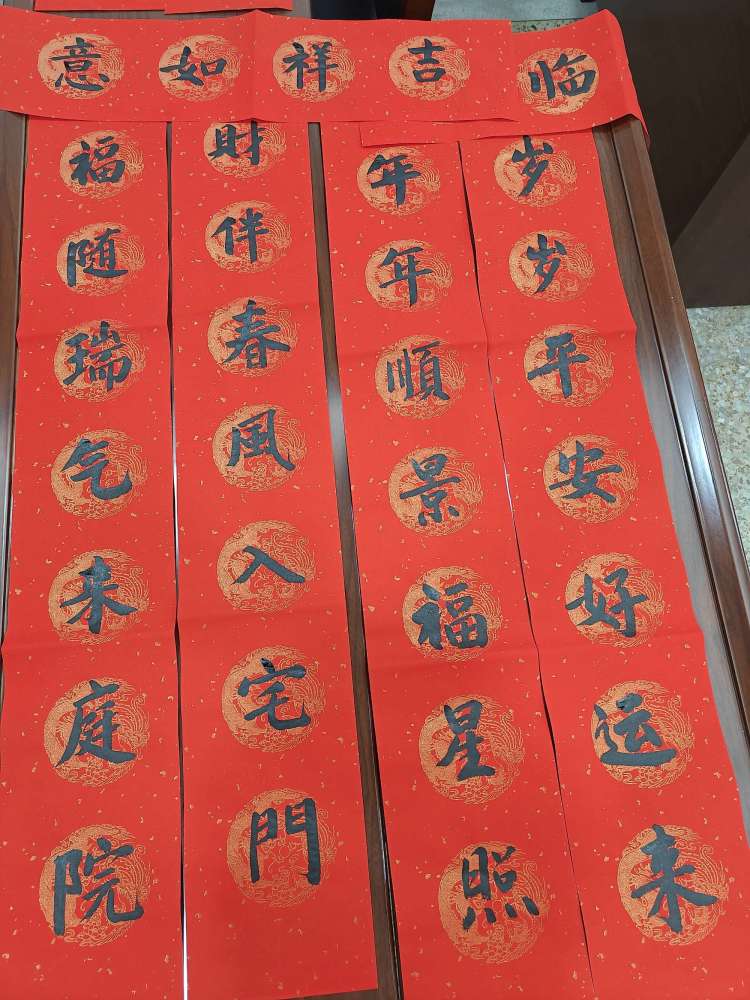 吉祥如意
临
福随瑞气来庭院
財伴春風入宅門
年年順景福星照
岁岁平安好运来